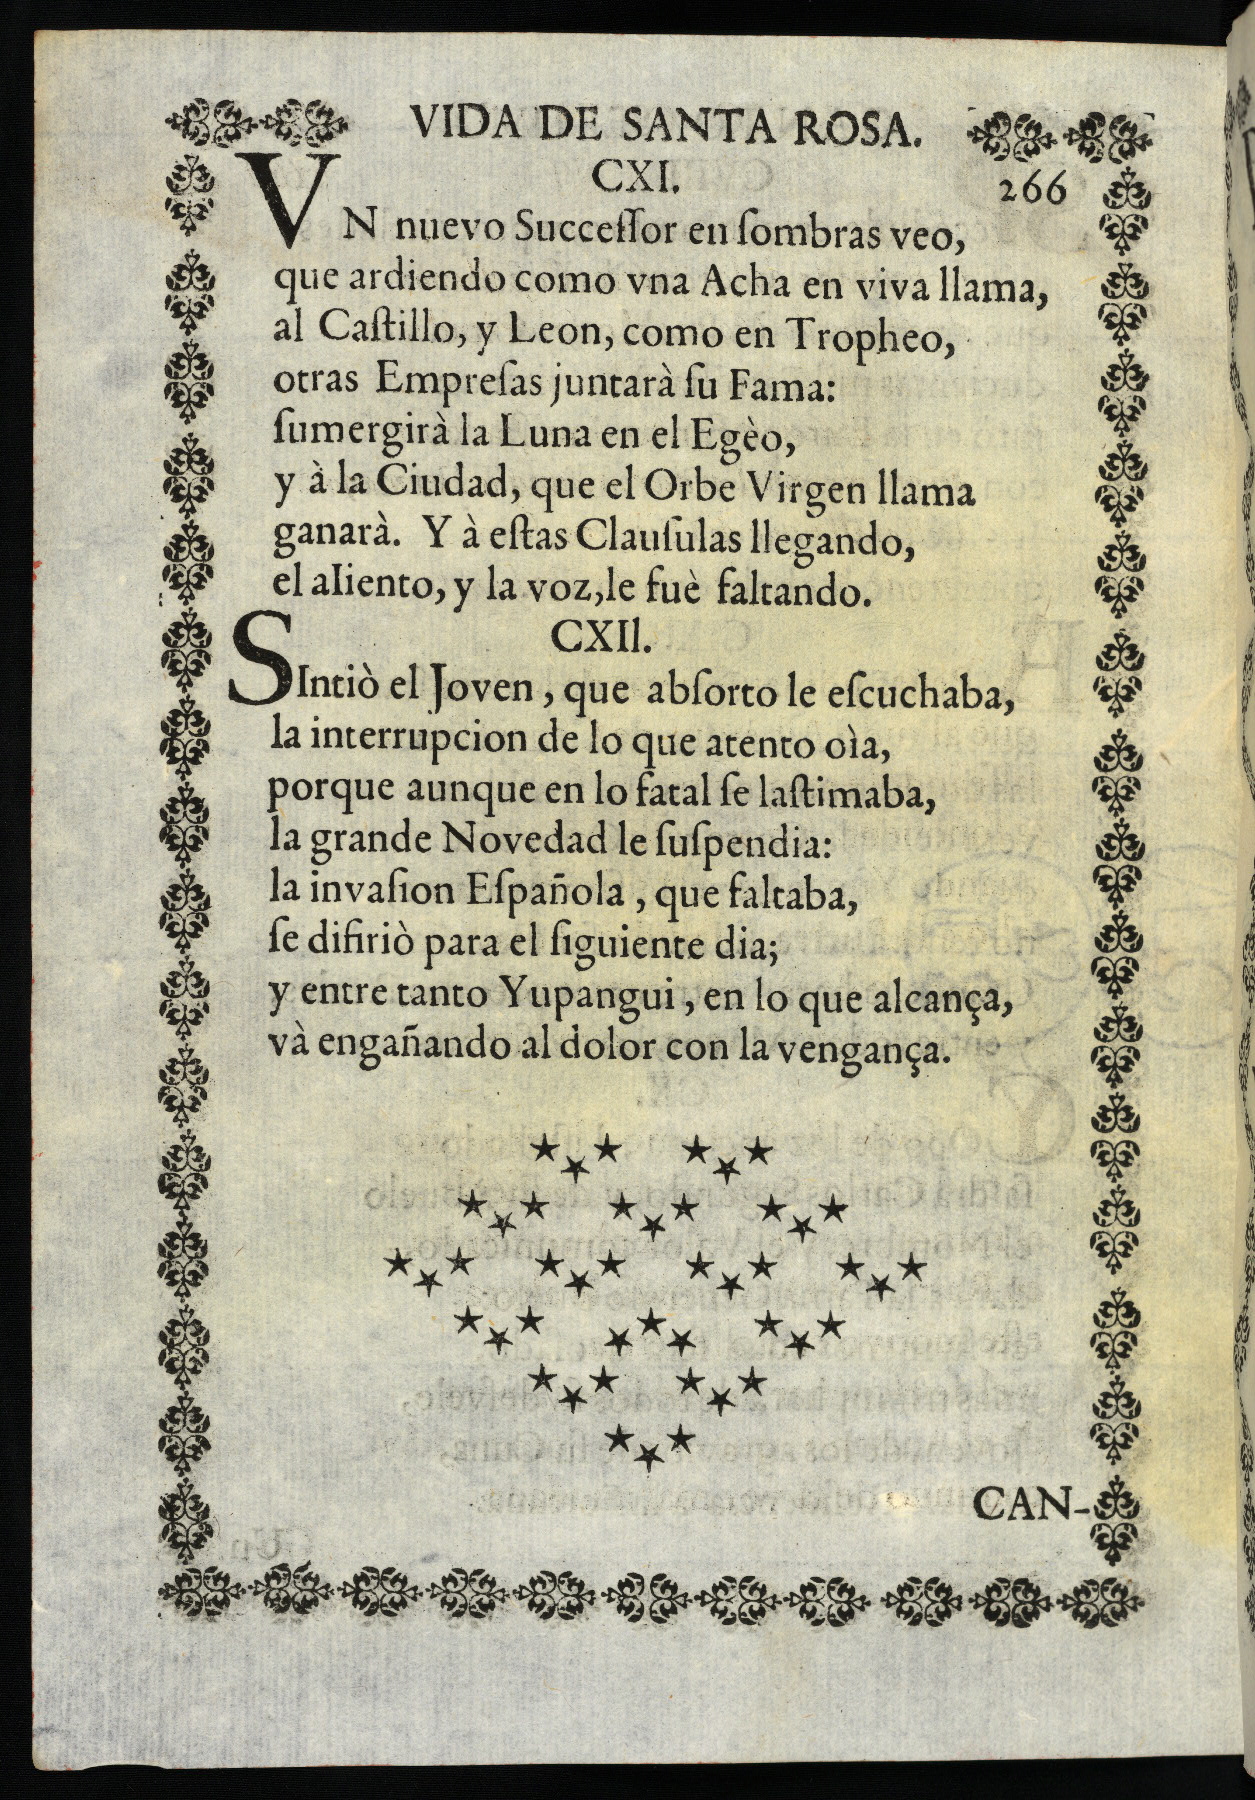 VIDA DE SANTA ROSA.
CXI.
266
VN nuevo Succeſſor en ſombras veo,
que ardiendo como vna Acha en viva llama,
al Caſtillo, y Leon, como en Tropheo,
otras Empreſas juntarà ſu Fama:
ſumergirà la Luna en el Egèo,
y à la Ciudad, que el Orbe Virgen llama
ganarà. Y à eſtas Clauſulas llegando,
el aliento, y la voz, le fuè faltando.
CXII.
SIntiò el Joven, que abſorto le eſcuchaba,
la interrupcion de lo que atento oìa,
porque aunque en lo fatal ſe laſtimaba,
la grande Novedad le ſuſpendia:
la invaſion Eſpañola, que faltaba,
ſe difiriò para el ſiguiente dia;
y entre tanto Yupangui, en lo que alcança,
và engañando al dolor con la vengança.
CAN-